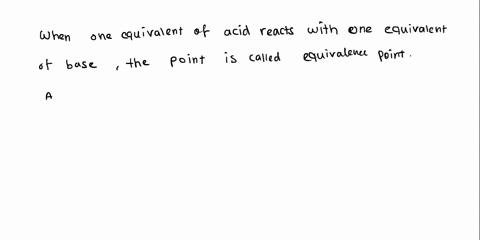 When one equivalent of acid reacts with one equivalent
of base, the point is called equivalence point.
A